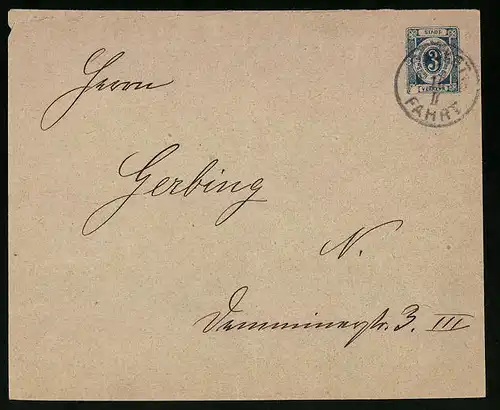 STADT
3
VERKEHR
FAHRT
Herrn
Gerbing
N.
Demminerstr. 3. III